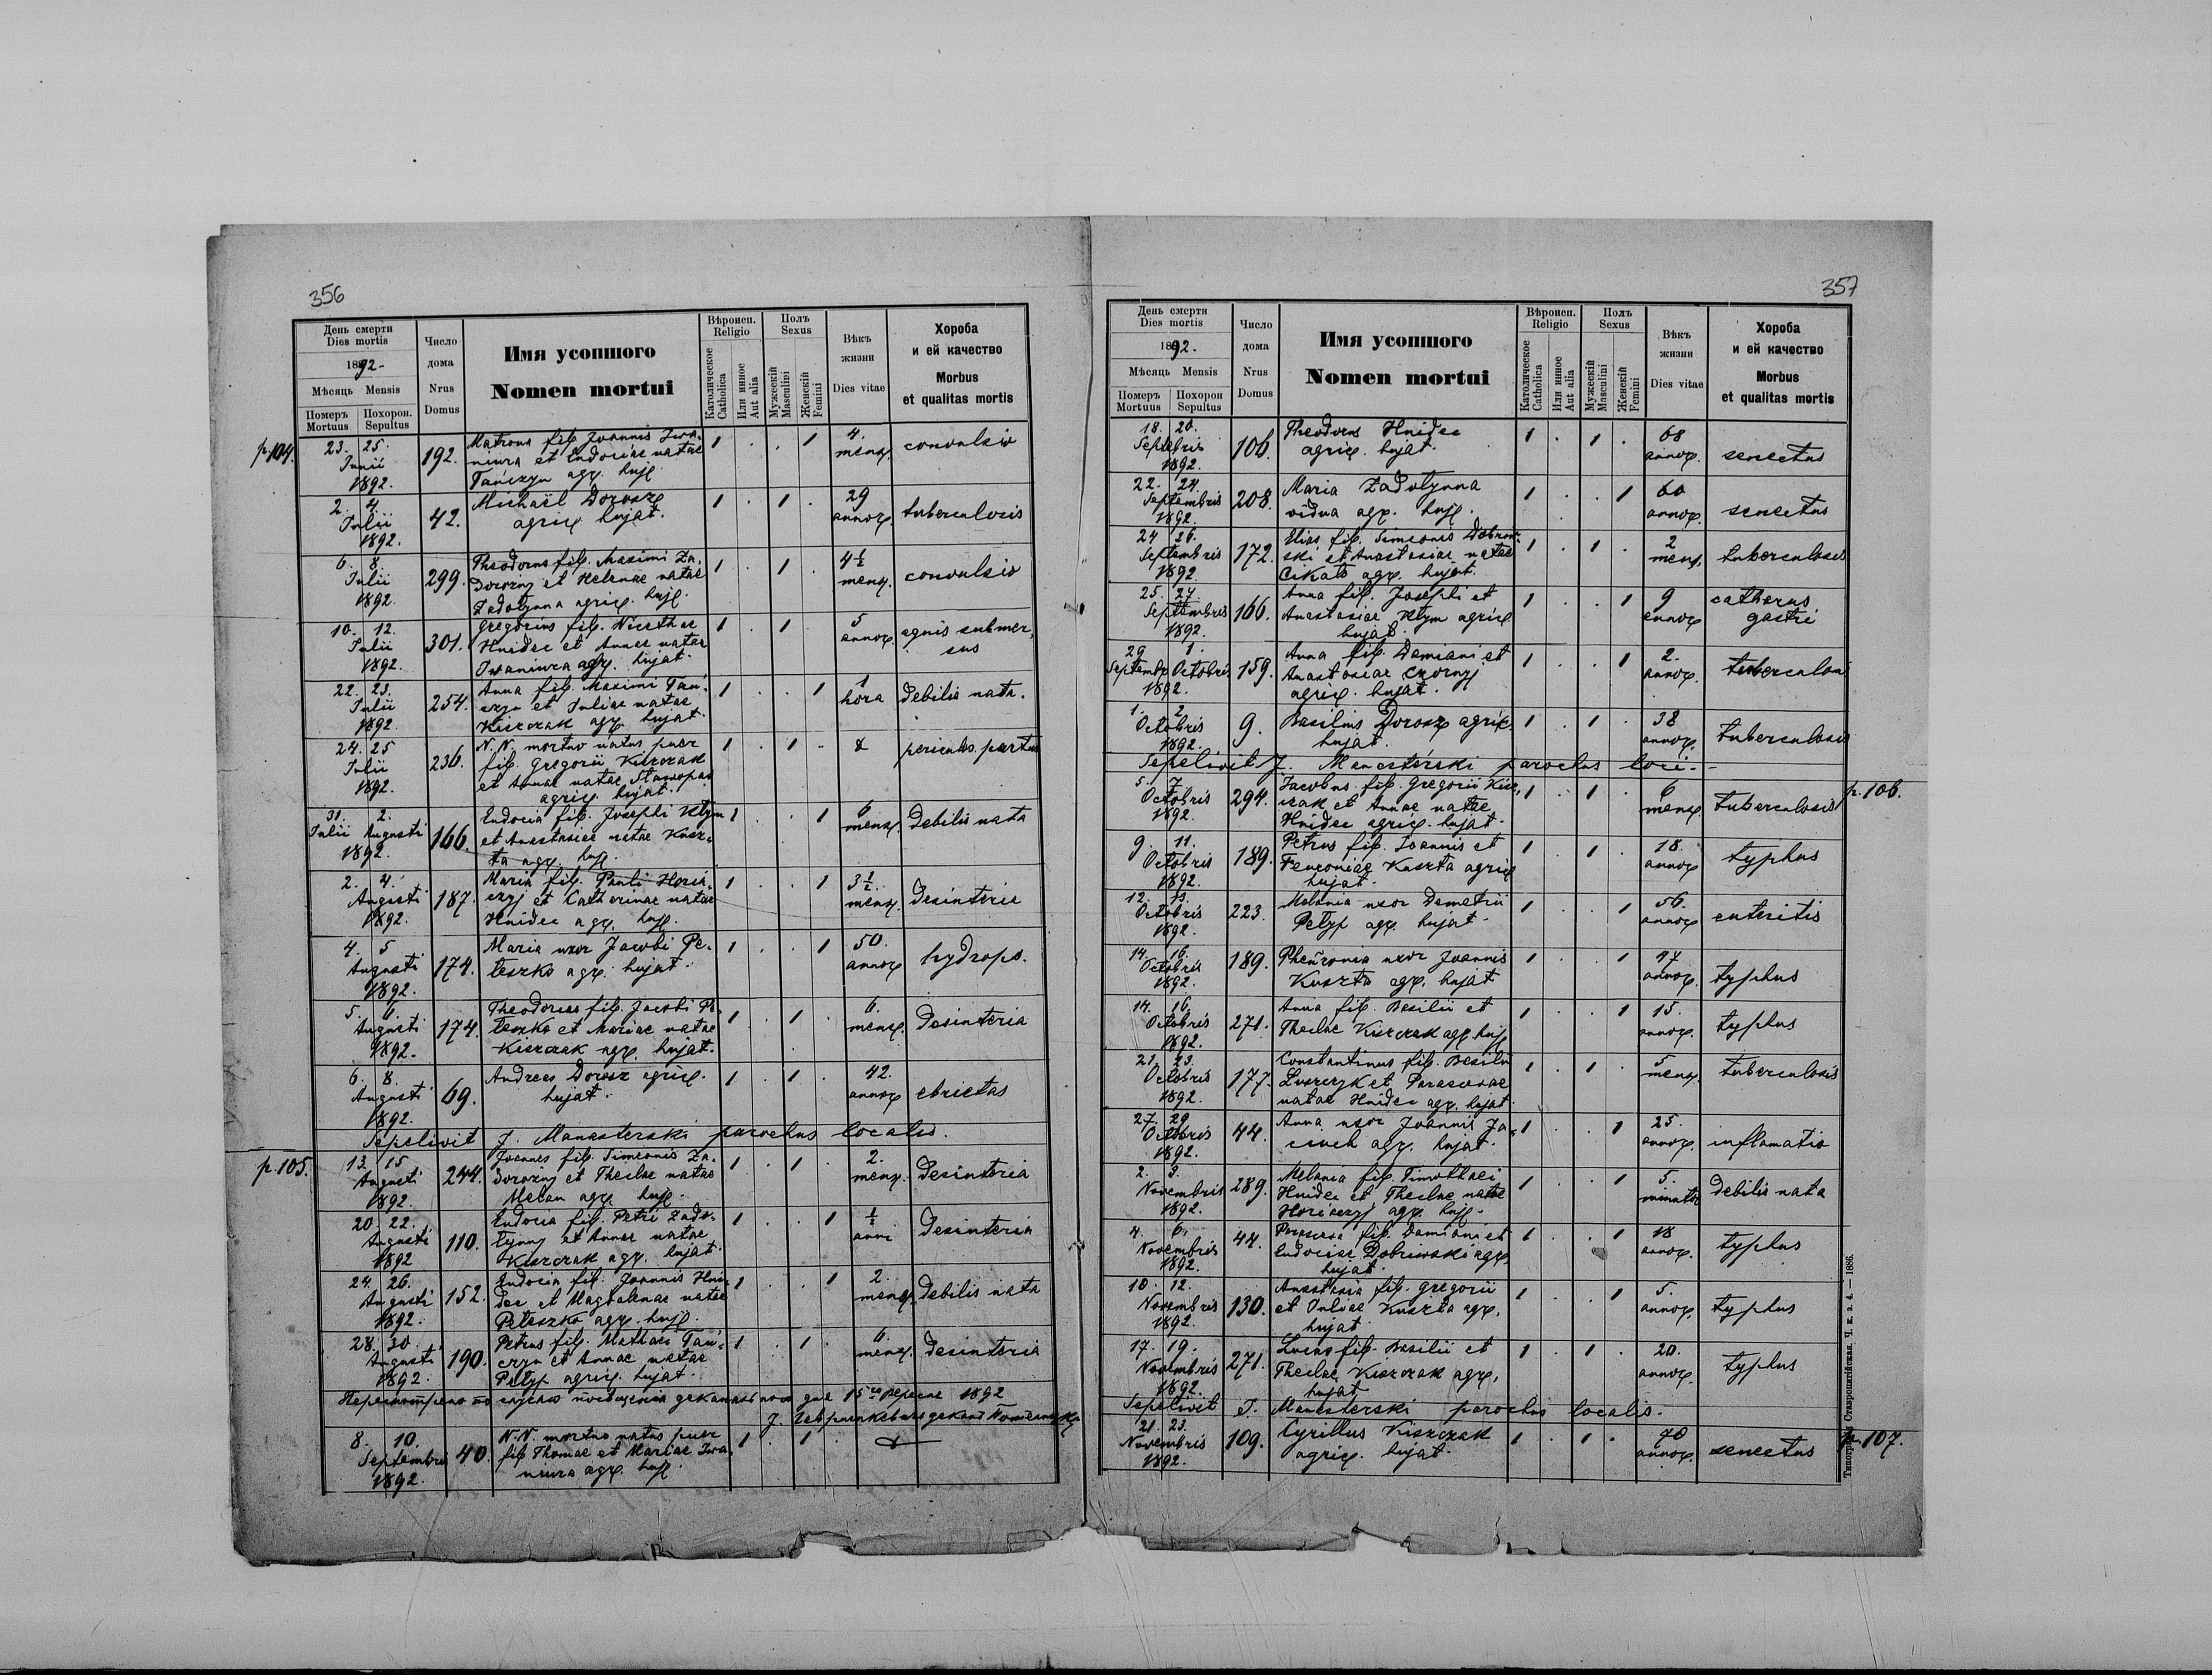 356
День смерти
Dies mortis
1892.
Мѣсяць Mensis
Померъ Похорон.
Mortuus Sepultus
Число
дома
Nrus
Domus
Имя усопшого
Nomen mortui
Вѣроисп.
Religio
Католическое
Catholica
Или инное
Aut alia
Полъ
Sexus
Мужескій
Masculini
Женскій
Femini
Вѣкъ
жизни
Dies vitae
Хороба
и ей качество
Morbus
et qualitas mortis
p.104. 23. 25. Junii 1892. 192.
Matrona fil. Joannis Iwa-
niura et Eudociae natae
Tańczyn agr. huj.
1 . . 1 4. mens. convulsio
2. 4. Julii 1892. 42.
Michaël Dorosz
agric. hujat.
1 . 1 . 29 annor. tuberculosis
6. 8. Julii 1892. 299.
Theodorus fil. Maximi Za-
dorozny et Helenae natae
Zadolynna agric. huj.
1 . 1 . 4½ mens. convulsio
10. 12. Julii 1892. 301.
Gregorius fil. Nicethae
Hnidec et Annae natae
Iwaniura agr. hujat.
1 . 1 5 annor. aquis submer-
sus
22. 23. Julii 1892 254.
Anna fil. Maximi Tań-
czyn et Juliae natae
Kiszczak agr. hujat.
1 . . 1 1 hora debilis nata.
24. 25 Julii 1892. 236.
N. N. mortuo natus puer
fil. Gregorii Kiszczak
et Annae natae
agric. hujat.
1 . 1 . pericul. partus
31. 2. Julii Augusti 1892. 166.
Eudocia fil. Josephi Klym
et Anastasiae natae Kusz-
ta agr. huj.
1 . . 1 6 mens. debilis nata
2. 4. Augusti 1892. 187.
Maria fil. Pauli Hori-
czyj et Catharinae natae
Hnidec agr. huj.
1 . . 1 3½. mens. Desinterie
4. 5 Augusti 1892. 174.
Maria uxor Jacobi Pe-
teszko agr. hujat.
1 . . 1 50. annor. hydrops.
5. 6. Augusti 1892. 174.
Theodorus fil. Jacobi Pe-
teszko et Mariae natae
Kiszczak agr. hujat.
1 . 1 . 6. mens. Desinteria
6. 8. Augusti 1892. 69.
Andreas Dorosz agric.
hujat.
1 . 1 . 42. annor. ebrietas
Sepelivit J. Manasterski parochus localis.
p.105. 13. 15 Augusti 1892. 244.
Joannes fil. Simeonis Za-
dorozny et Theclae natae
Melan agr. huj.
1 . 1 . 2. mens. Desinteria
20. 22. Augusti 1892 110.
Eudocia fil. Petri Zado-
lynny et Annae natae
Kiszczak agr. hujat.
1 . . 1 ½ anni Desinteria
24. 26. Augusti 1892. 152.
Eudocia fil. Joannis Hni-
dec et Magdalenae natae
Peteszko agr. huj.
1 . . 1 2. mens. Debilis nata
28. 30. Augusti 1892. 190.
Petrus fil. Mathaei Tań-
czyn et Annae natae
Petyp agric. hujat.
1 . 1 . 6. mens. Desinteria
1892
8. 10. Septembris 1892. 40.
N.N. mortuo natus puer
fil. Thomae et Mariae Iwa-
niura agr. huj.
1 . 1 .
357
День смерти
Dies mortis
1892.
Мѣсяць Mensis
Померъ Похорон
Mortuus Sepultus
Число
дома
Nrus
Domus
Имя усопшого
Nomen mortui
Вѣроисп.
Religio
Католическое
Catholica
Или инное
Aut alia
Полъ
Sexus
Мужескій
Masculini
Женскій
Femini
Вѣкъ
жизни
Dies vitae
Хороба
и ей качество
Morbus
et qualitas mortis
18. 20. Septembris 1892. 106.
Theodorus Hnidec
agric. hujat.
1 . 1 . 68 annor. senectus
22. 24. Septembris 1892. 208.
Maria Zadolynna
vidua agr. huj.
1 . . 1 60 annor. senectus
24 26. Septembris 1892. 172.
Elias fil. Simeonis Dobriw-
ski et Anastasiae natae
Cikało agr. hujat.
1 . 1 . 2 mens. tuberculosis
25. 27. Septembris 166.
Anna fil. Josephi et
Anastasiae Klym agric.
hujat.
1 . . 1 9 annor. catharus
gastri
29 1. Septembr. Octobris 1892. 159.
Anna fil. Damiani et
Anastasiae Czornyj
agric. hujat.
1 . . 1 2. annor. tuberculosis
1. 2. Octobris 1892. 9.
Basilius Dorosz agric.
hujat.
1 . 1 . 38 annor. tuberculosis
Sepelivit J. Manasterski parochus loci.
5. 7. Octobris 1892. 294.
Jacobus fil. Gregorii Kisz-
czak et Annae natae
Hnidec agric. hujat.
1 . 1 . 6 mens. tuberculosis p.106.
9. 11. Octobris 1892. 189.
Petrus fil. Joannis et
Feuroniae Kuszta agric.
hujat.
1 . 1 . 18. annor. typhus
12. 13. Octobris 1892. 223.
Melania uxor Demetrii
Petyp agr. hujat.
1 . . 1 56. annor. enteritis
14. 16. Octobris 1892. 189.
Pheuronia uxor Joannis
Kuszta agr. hujat
1 . . 1 47 annor. typhus
14. 16. Octobris 1892. 271.
Anna fil. Basilii et
Theclae Kiszczak agr. huj.
1 . . 1 15. annor. typhus
21. 23. Octobris 1892. 177.
Constantinus fil. Basilii
Luszczyk et Parascevae
natae Hnidec agr. hujat.
1 . 1 . 5 mens. tuberculosis
27. 29 Octobris 1892. 44.
Anna uxor Joannis Ja-
ciuch agr. hujat.
1 . . 1 25. annor. inflamatio
2. 3. Novembris 1892. 289.
Melania fil. Timothaei
Hnidec et Theclae natae
Horiczyj agr. huj.
1 . . 1 5. minutae debilis nata
4. 6. Novembris 1892. 44.
Parasceva fil. Damiani et
Eudociae Dobriwski agr.
hujat.
1 . . 1 18 annor. typhus
10. 12. Novembris 1892. 130.
Anastasia fil. Gregorii
et Juliae Kuszta agr.
hujat
1 . . 1 5. annor. typhus
17. 19. Novembris 1892. 271.
Lucas fil. Basilii et
Theclae Kiszczak agr.
hujat
1 . 1 . 20. annor. typhus
Sepelivit J. Manasterski parochus localis.
21. 23. Novembris 1892. 109.
Cyrillus Kiszczak
agric. hujat.
1 . 1 . 70 annor. senectus p.107.
Ставропигійская. Ч. к. г. 4. — 1886.